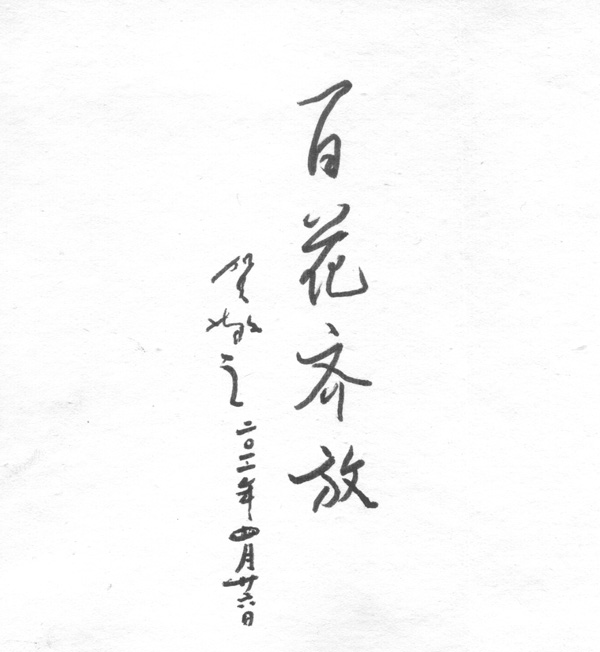 百花齐放
贺敬之
二〇一二年四月廿六日